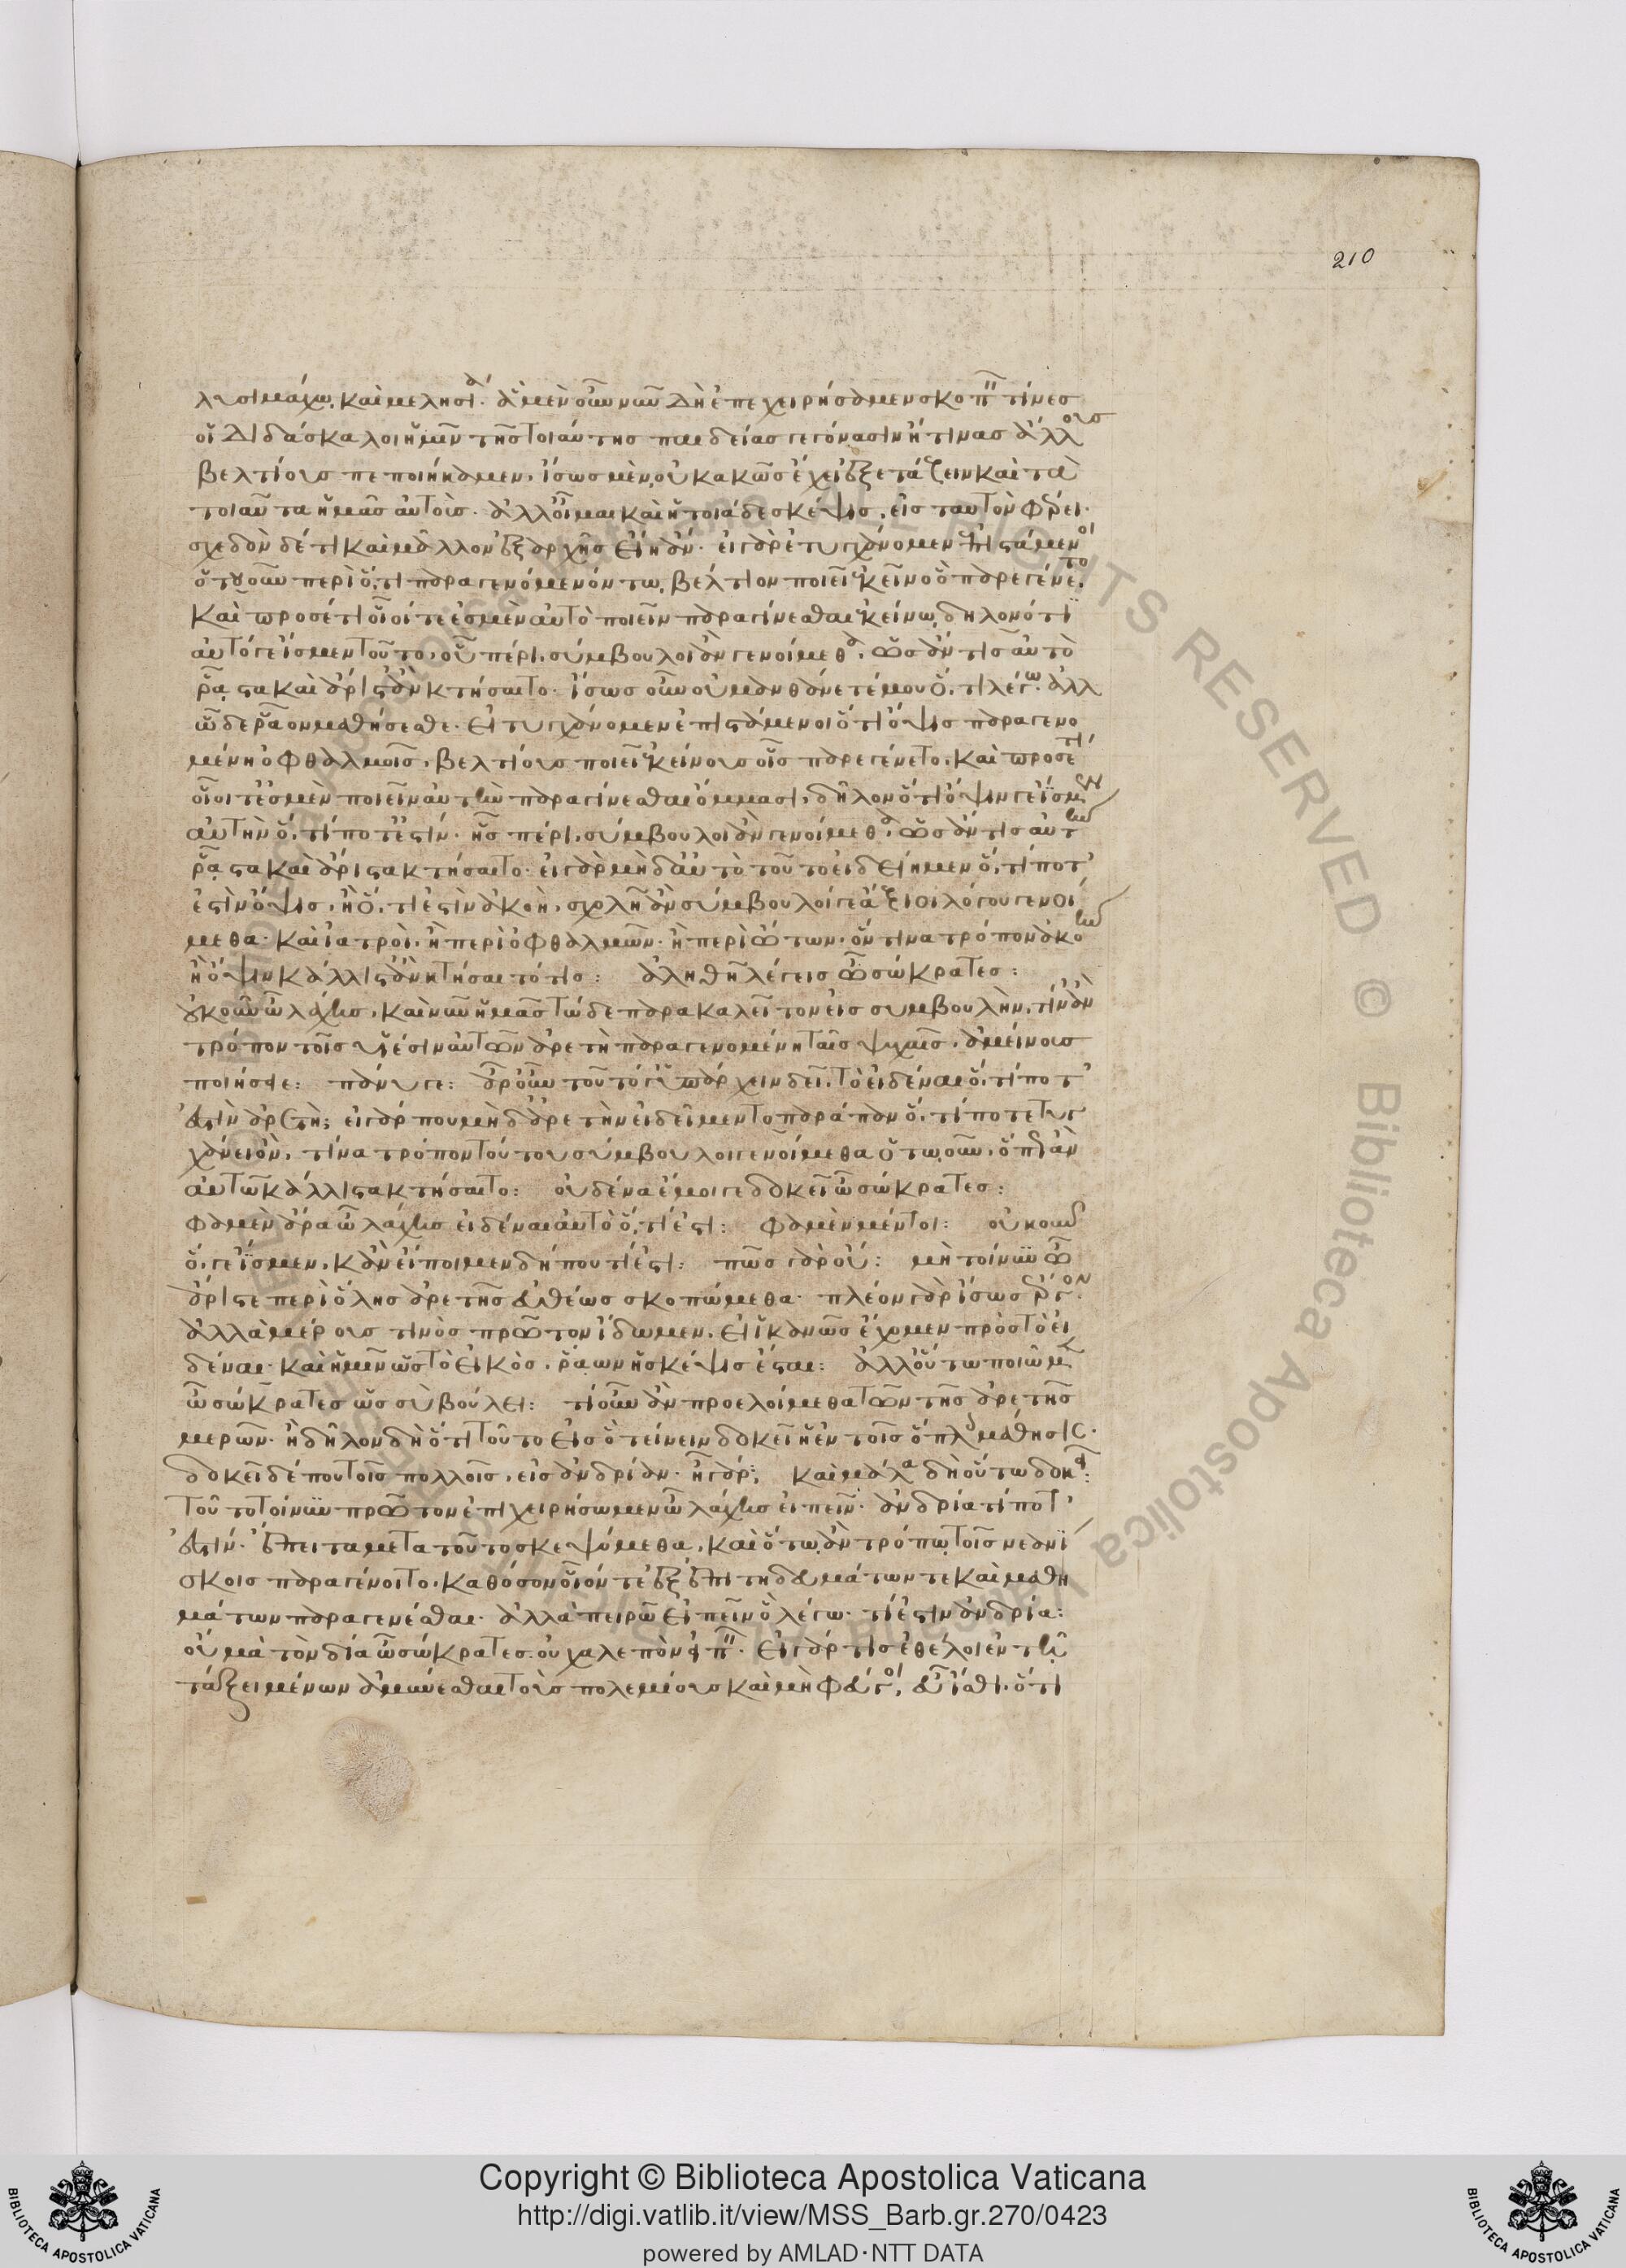 210
λυσιμάχω, καὶ μελησία. ἃ μὲν οὖν νῦν δὴ ἐπεχειρήσαμεν σκοπεῖν τίνες
οἱ διδάσκαλοι ἡμῖν τῆς τοιαύτης παιδείας γεγόνασιν ἢ τίνας ἄλλους
βελτίους πεποιήκαμεν, ἴσως μὲν, οὐ κακῶς ἔχει ἐξετάζειν καὶ τὰ
τοιαῦτα ἡμᾶς αὐτούς. ἀλλ' οἶμαι καὶ ἡ τοιάδε σκέψις, εἰς ταυτὸν φέρει.
σχεδὸν δέ τι καὶ μᾶλλον ἐξ ἀρχῆς εἴη ἄν. εἰ γὰρ ἐτυγχάνομεν ἐπιστάμενοι
ὅτου οὖν περὶ ὅ, τι παραγενόμενόν τω, βέλτιον ποιεῖ ἐκεῖνο ὃ παρεγένετο,
καὶ προσέτι οἷοί τέ ἐσμεν αὐτὸ ποιεῖν παραγίνεσθαι ἐκείνω, δῆλον ὅτι
αὐτό γε ἴσμεν τοῦτο, οὗ πέρι, σύμβουλοι ἂν γενοίμεθα, ὡς ἄν τις αὐτὸ
ῥᾷστα καὶ ἄριστ' ἂν κτήσαιτο. ἴσως οὖν οὐ μανθάνετέ μου ὅ, τι λέγω. ἀλλ
ὧδε ῥᾷον μαθήσεσθε. εἰ τυγχάνομεν ἐπιστάμενοι ὅτι ὄψις παραγενο
μένη ὀφθαλμοῖς, βελτίους ποιεῖ ἐκείνους οἷς παρεγένετο, καὶ προσέτι
οἷοί τέ ἐσμεν ποιεῖν αὐτὴν παραγίνεσθαι ὄμμασι, δῆλον ὅτι ὄψιν γε ἴσμεν
αὐτὴν ὅ, τί ποτ' ἐστίν. ἧς πέρι, σύμβουλοι ἂν γενοίμεθα, ὡς ἄν τις αὐτὴν
ῥᾷστα καὶ ἄριστα κτήσαιτο. εἰ γὰρ μὴδ' αὐτὸ τοῦτο εἰδείημεν ὅ, τί ποτ'
ἐστὶν ὄψις, ἢ ὅ, τι ἐστὶν ἀκοὴ, σχολῇ ἂν σύμβουλοί γε ἄξιοι λόγου γενοί
μεθα. καὶ ἰατροὶ, ἢ περὶ ὀφθαλμῶν. ἢ περὶ ὤτων, ὅντινα τρόπον ἀκοὴν
ἢ ὄψιν κάλλιστ' ἂν κτήσαιτό τις: ἀληθῆ λέγεις ὦ σώκρατες:
οὐκοῦν ὦ λάχης, καὶ νῦν ἡμᾶς τώδε παρακαλεῖτον εἰς συμβουλὴν, τίν' ἂν
τρόπον τοῖς υἱέσιν αὐτῶν ἀρετὴ παραγενομένη ταῖς ψυχαῖς, ἀμείνους
ποιήσειε: πάνυ γε: ἆρ' οὖν τοῦτό γ' ὑπάρχειν δεῖ, τὸ εἰδέναι ὅ, τί ποτ'
ἐστὶν ἀρετὴ; εἰ γάρ που μὴδ' ἀρετὴν εἰδεῖμεν τὸ παράπαν ὅ, τί ποτε τυγ
χάνει ὂν, τίνα τρόπον τούτου σύμβουλοι γενοίμεθα ὅτω, οὖν, ὅπως ἂν
αὐτὸ κάλλιστα κτήσαιτο: οὐδένα ἔμοιγε δοκεῖ ὦ σώκρατες:
φαμὲν ἄρα ὦ λάχης εἰδέναι αὐτὸ ὅ, τι ἔστι: φαμὲν μέντοι: οὐκοῦν
ὅ, γε ἴσμεν, κἂν εἴποιμεν δήπου τί ἔστι: πῶς γὰρ οὔ: μὴ τοίνυν ὦ
ἄριστε περὶ ὅλης ἀρετῆς εὐθέως σκοπώμεθα. πλέον γὰρ ἴσως ἔργον.
ἀλλὰ μέρους τινὸς πρῶτον ἴδωμεν, εἰ ἱκανῶς ἔχομεν πρὸς τὸ εἰ
δέναι. καὶ ἡμῖν ὡς τὸ εἰκὸς, ῥᾴων ἡ σκέψις ἔσται: ἀλλ' οὕτω ποιῶμεν
ὦ σώκρατες ὡς σὺ βούλει: τί οὖν ἂν προελοίμεθα τῶν τῆς ἀρετῆς
μερῶν. ἢ δῆλον δὴ ὅτι τοῦτο εἰς ὃ τείνειν δοκεῖ ἡ ἐν τοῖς ὅπλοις μάθησις.
δοκεῖ δέ που τοῖς πολλοῖς, εἰς ἀνδρίαν. ἦ γάρ; καὶ μάλα δὴ οὕτω δοκεῖ:
τοῦτο τοίνυν πρῶτον ἐπιχειρήσωμεν ὦ λάχης εἰπεῖν. ἀνδρία τί ποτ'
ἐστίν. ἔπειτα μετὰ τοῦτο σκεψόμεθα, καὶ ὅτω, ἂν τρόπω, τοῖς νεανί
σκοις παραγένοιτο, καθόσον οἷόν τε ἐξ ἐπιτηδευμάτων τε καὶ μαθη
μάτων παραγενέσθαι. ἀλλὰ πειρῶ εἰπεῖν ὃ λέγω. τί ἐστιν ἀνδρία:
οὐ μὰ τὸν δία ὦ σώκρατες. οὐ χαλεπὸν εἰπεῖν. εἰ γάρ τις ἐθέλοι ἐν τῇ
τάξει μένων ἀμύνεσθαι τοὺς πολεμίους καὶ μὴ φεύγοι, εὖ ἴσθι. ὅτι
Copyright © Biblioteca Apostolica Vaticana
http://digi.vatlib.it/view/MSS_Barb.gr.270/0423
powered by AMLAD·NTT DATA
BIBLIOTECA APOSTOLICA VATICANA
BIBLIOTECA APOSTOLICA VATICANA